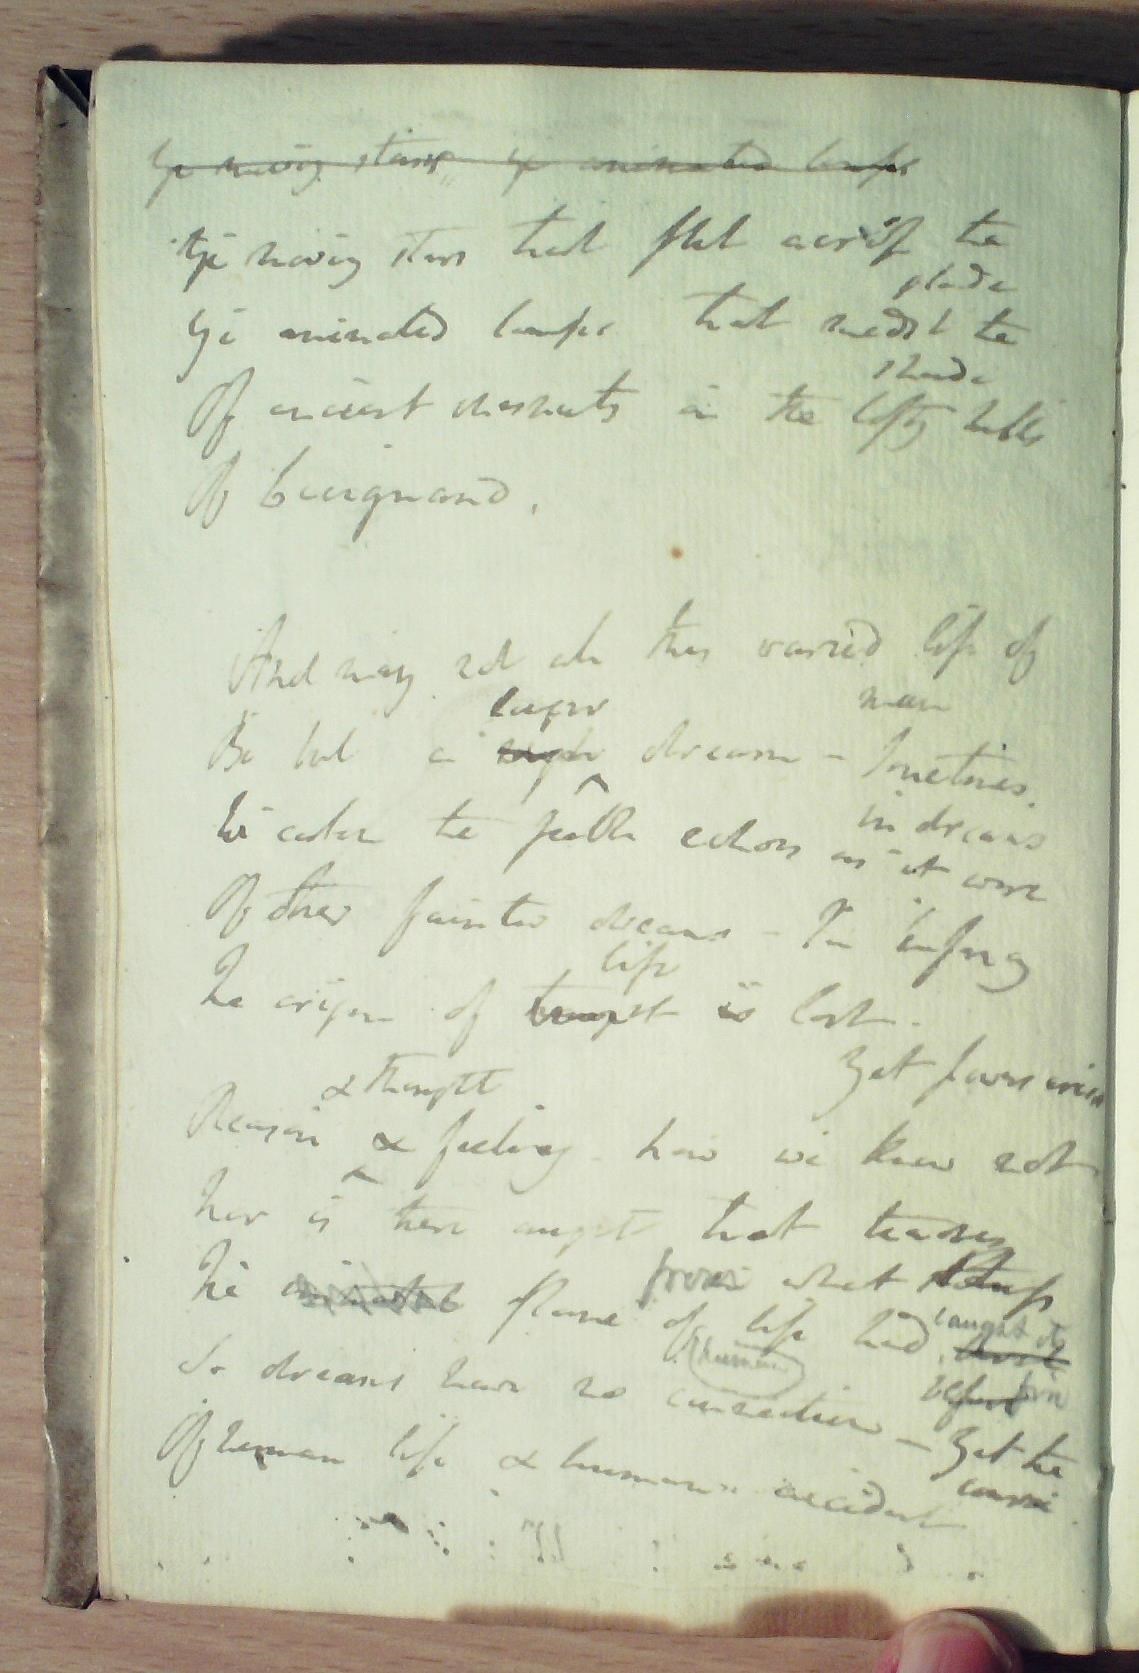 Ye moving stars, ye animated lamps
Ye moving stars that flit across the
glade
Ye animated lamps that midst the
shade
Of ancient chesnuts in the lofty hills
Of
And may not all this varied life of
man
longer
Be but a dream – Sometimes
in dreams
We catch the feeble echoes as it were
Of other fainter dreams – In infancy
life
The origin of is lost.
Yet powers arise
& thought
Reason & feeling how we know not
Nor is there aught that teaches
from what
The flame of life had
caught its
human
form
So dreams have no connection – Yet the
course
Of human life & human accident